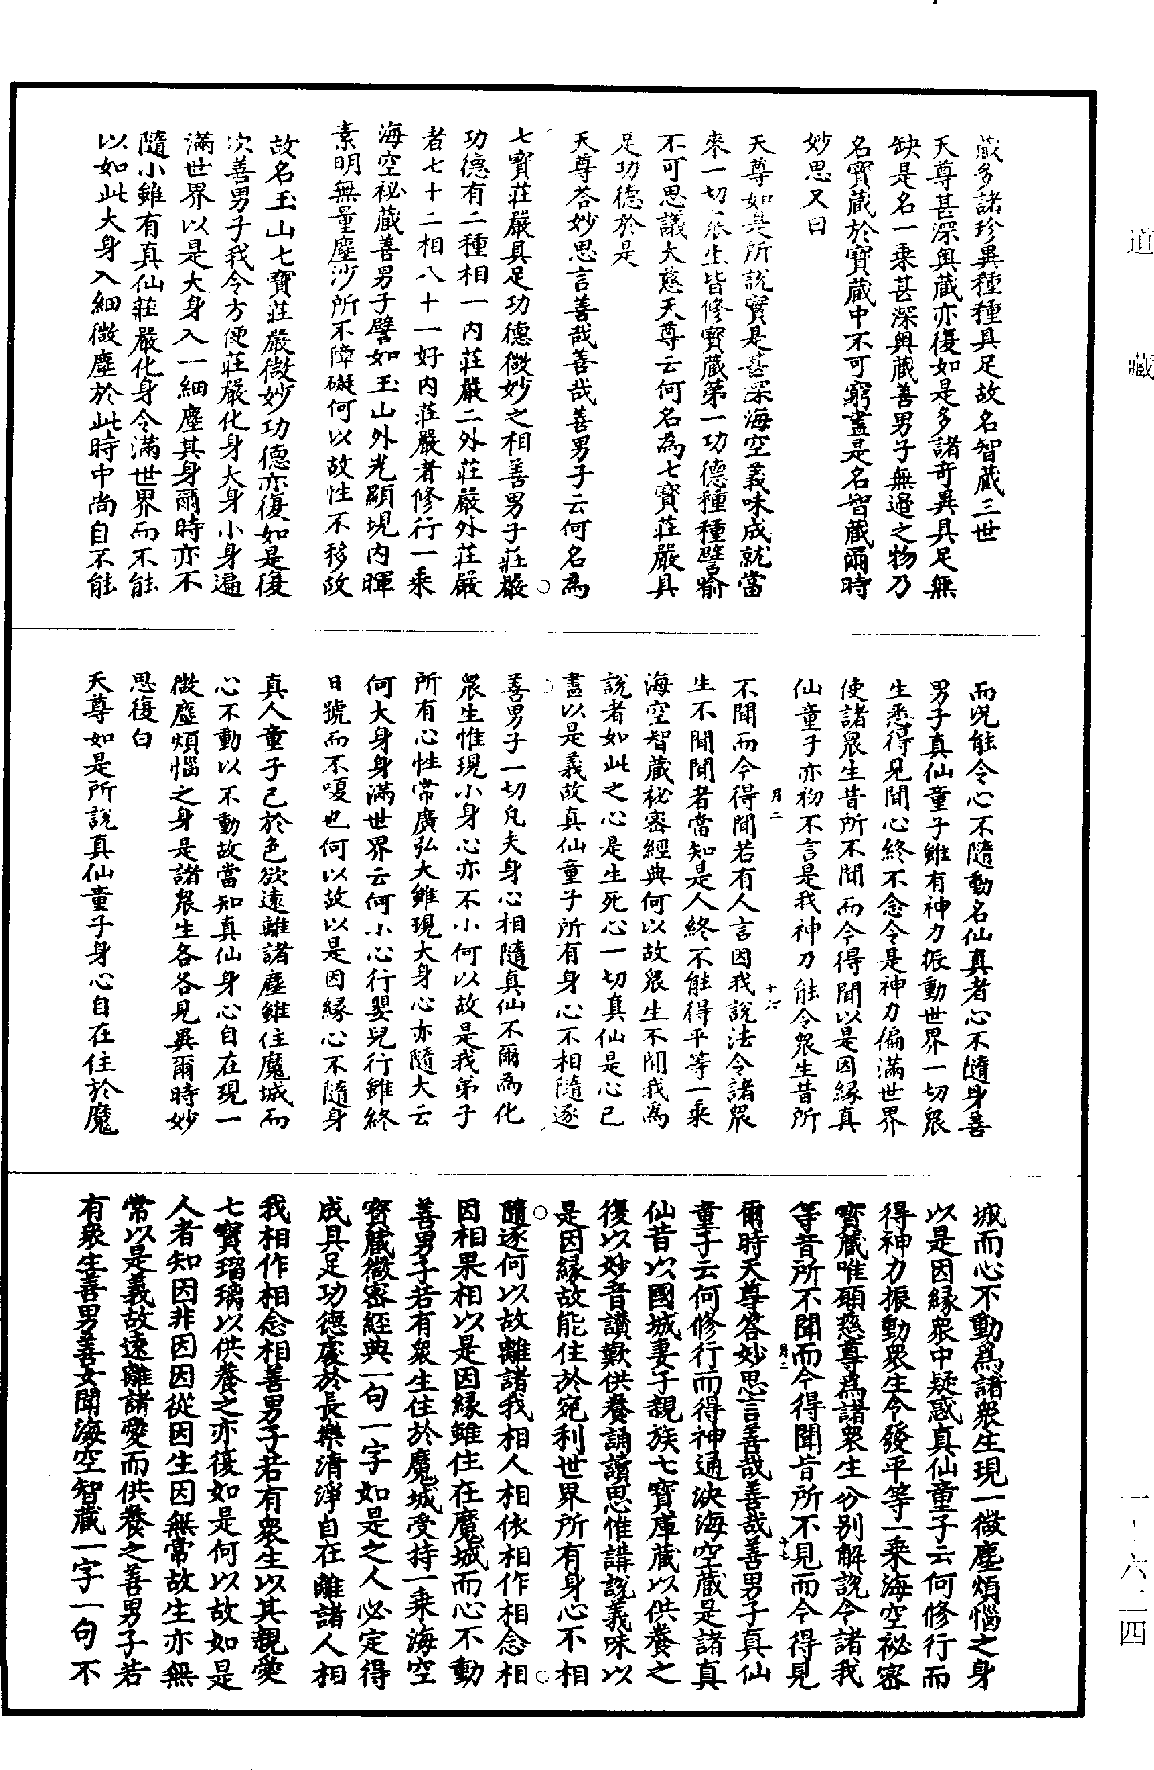 藏多諸珍異種種具足故名智藏三世
天尊甚深輿藏亦復如是多諸奇異具足無
缺是名一乘甚深輿藏善男子無邊之物乃
名寶藏於寶藏中不可窮盡是名智藏爾時
妙思又曰
天尊如是所說實是甚深海空義味成就當
來一切衆生皆修寶藏第一功德種種譬喻
不可思議大慈天尊云何名為七寶莊嚴具
足功德於是
天尊荅妙思言善哉善哉善男子云何名為
七寶莊嚴具足功德微妙之相善男子莊嚴
功德有二種相一內莊嚴二外莊嚴外莊嚴
者七十二相八十一好內莊嚴者修行一乘
海空祕藏善男子譬如玉山外光顯現內暉
素明無量塵沙所不障礙何以故性不移故
故名玉山七寶莊嚴微妙功德亦復如是復
次善男子我令方便莊嚴化身大身小身遍
滿世界以是大身入一細塵其身爾時亦不
隨小雖有真仙莊嚴化身令滿世界而不能
以如此大身入細微塵於此時中尚自不能
而況能令心不隨動名仙真者心不隨身善
男子真仙童子雖有神力振動世界一切衆
生悉得見聞心終不念令是神力徧滿世界
使諸衆生昔所不聞而今得聞以是因緣真
仙童子亦初不言是我神力能令衆生昔所
不聞而今得聞若有人言因我說法令諸衆
生不聞聞者當知是人終不能得平等一乘
海空智藏祕密經典何以故衆生不聞我為
說者如此之心是生死心一切真仙是心已
盡以是義故真仙童子所有身心不相隨逐
善男子一切凡夫身心相隨真仙不爾為化
衆生惟現小身心亦不小何以故是我弟子
所有心性常廣弘大雖現大身心亦隨大云
何大身身滿世界云何小心行嬰兒行雖終
日號而不嗄也何以故以是因緣心不隨身
真人童子已於色欲遠離諸塵雖住魔城而
心不動以不動故當知真仙身心自在現一
微塵煩惱之身是諸衆生各各見異爾時妙
思復白
天尊如是所說真仙童子身心自在住於魔
城而心不動為諸衆生現一微塵煩惱之身
以是因緣衆中疑惑真仙童子云何修行而
得神力振動衆生令發平等一乘海空祕密
寶藏唯願慈尊為諸衆生分別解說令諸我
等昔所不聞而今得聞昔所不見而今得見
爾時天尊荅妙思言善哉善哉善男子真仙
童子云何修行而得神通決海空藏是諸真
仙昔以國城妻子親族七寶庫藏以供養之
復以妙音讚歎供養誦讀思惟講說義味以
是因緣故能住於宛利世界所有身心不相
隨逐何以故離諸我相人相依相作相念相
因相果相以是因緣雖住在魔城而心不動
善男子若有衆生住於魔城受持一乘海空
寶藏微密經典一句一字如是之人必定得
成具足功德處於長樂清淨自在離諸人相
我相作相念相善男子若有衆生以其親愛
七寶瑠璃以供養之亦復如是何以故如是
人者知因非因因從因生因無常故生亦無
常以是義故遠離諸愛而供養之善男子若
有衆生善男善女聞海空智藏一字一句不
月二
十六
月二
十七
道藏